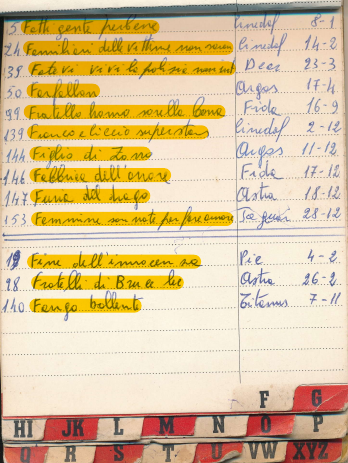 5 Fatti gente perbene Cinedel 8-1
24 Familiari delle vittime non saran Cinedel 14-2
35 Fate vi vivi la polizia non int Dear 23-3
50 Farfallon Argos 17-4
99 Fratello homo sorella bona Fida 16-9
139 Franco e Ciccio superstars Cinedel 2-12
144 Figlio di Zorro Argos 11-12
146 Fabbrica dell'onore Fida 17-12
147 Furia del drago Astra 18-12
153 Femmine son nate per fare amore 28-12
19 Fine dell'innocenza Pic 4-2
28 Fratelli di Bruce lee Astra 26-2
140 Fango bollente Titanus 7-11
F G
HI JK L M N O P
Q R S T U VW XYZ